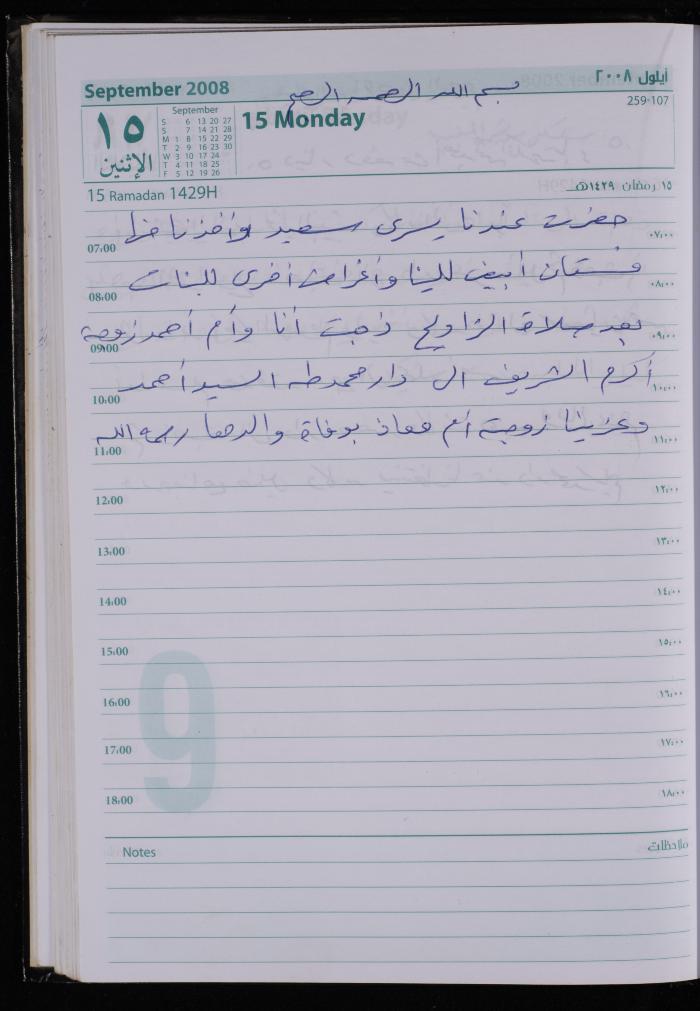 September 2008
بسم الله الرحمن الرحيم
أيلول ٢٠٠٨
259-107
١٥
الإثنين
September
S 6 13 20 27
S 7 14 21 28
M 1 8 15 22 29
T 2 9 16 23 30
W 3 10 17 24
T 4 11 18 25
F 5 12 19 26
15 Monday
15 Ramadan 1429H
١٥ رمضان ١٤٢٩هـ
حضرت عندنا يسرى سعيد وأخذنا منها
07:00 ٠٧:٠٠
فستان أبيض للينا وأغراض أخرى للبنات
08:00 ٠٨:٠٠
بعد صلاة التراويح ذهبت أنا وأم أحمد زوجة
09:00 ٠٩:٠٠
أكرم الشريف الى دار محمد طه السيد أحمد
10:00 ١٠:٠٠
وعزينا زوجته أم معاذ بوفاة والدها رحمه الله
11:00 ١١:٠٠
12:00 ١٢:٠٠
13:00 ١٣:٠٠
14:00 ١٤:٠٠
15:00 ١٥:٠٠
16:00 ١٦:٠٠
17:00 ١٧:٠٠
18:00 ١٨:٠٠
9
Notes ملاحظات